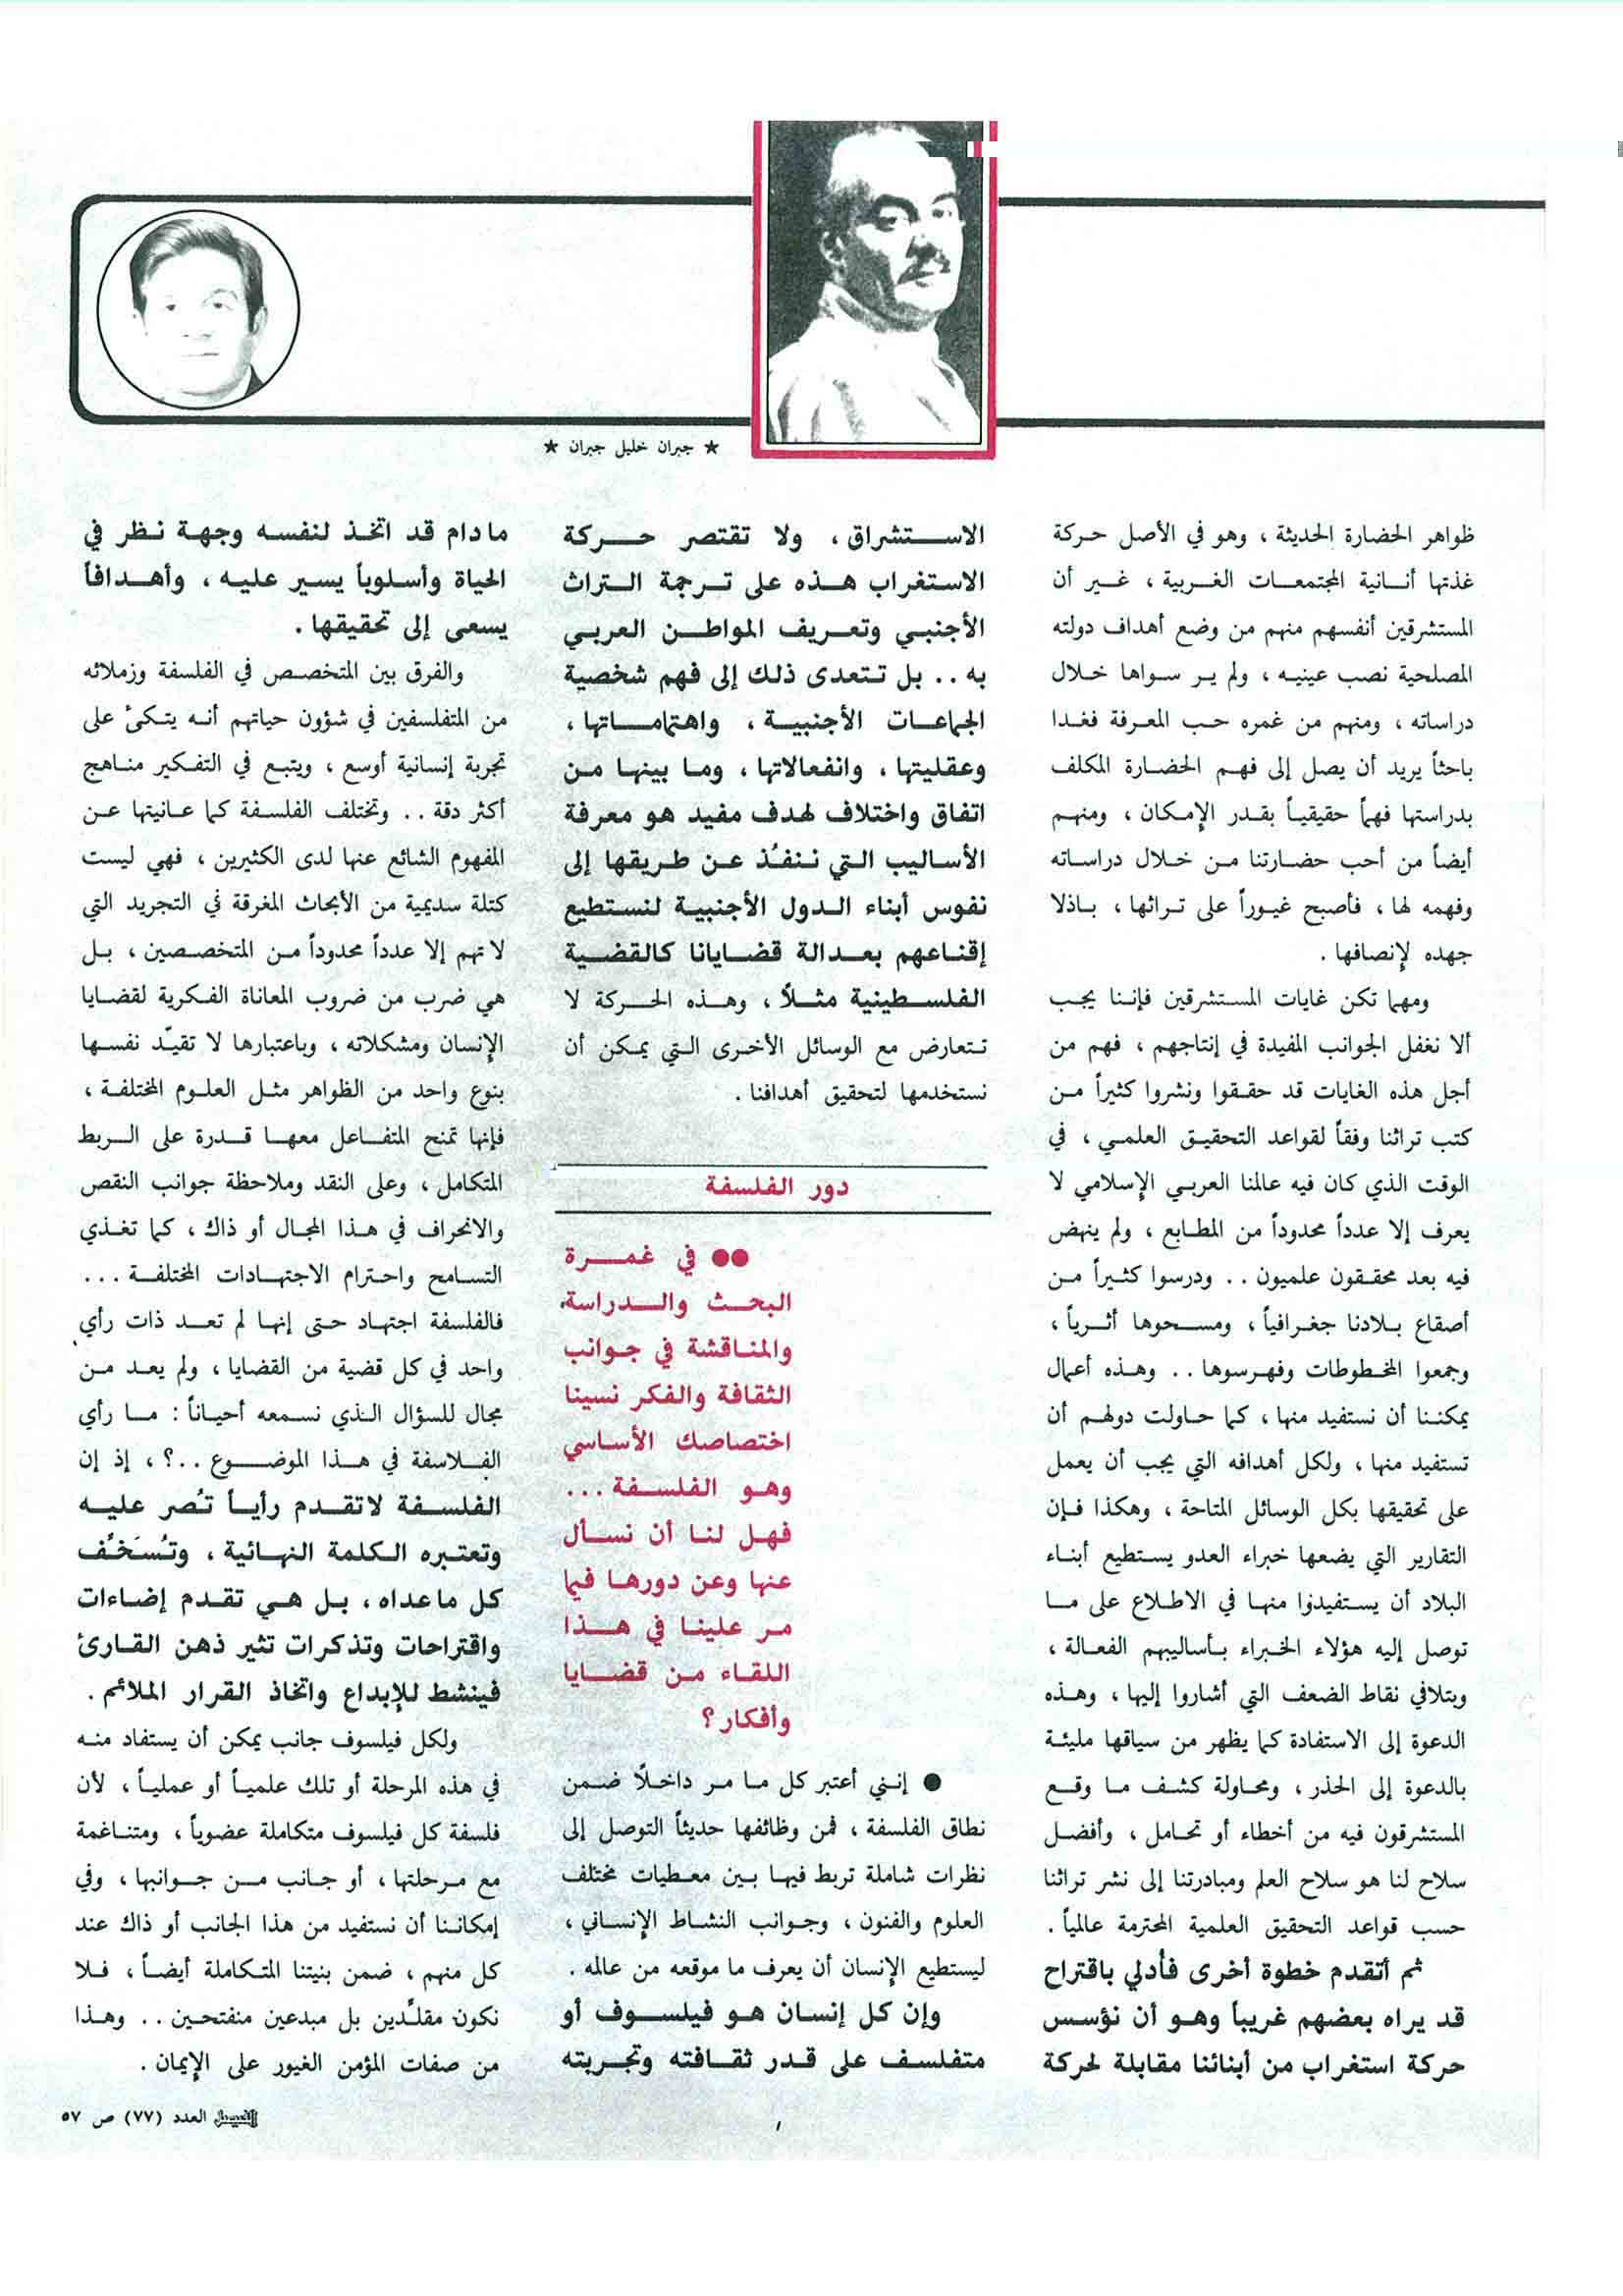 ★ جبران خليل جبران ★
ظواهر الحضارة الحديثة ، وهو في الأصل حركة
غذتها أنانية المجتمعات الغربية ، غير أن
المستشرقين أنفسهم منهم من وضع أهداف دولته
المصلحية نصب عينيه ، ولم ير سواها خلال
دراساته ، ومنهم من غمره حب المعرفة فغدا
باحثاً يريد أن يصل إلى فهم الحضارة المكلف
بدراستها فهماً حقيقياً بقدر الإمكان ، ومنهم
أيضاً من أحب حضارتنا من خلال دراساته
وفهمه لها ، فأصبح غيوراً على تراثها ، باذلا
جهده لإنصافها .
ومهما تكن غايات المستشرقين فإننا يجب
ألا نغفل الجوانب المفيدة في إنتاجهم ، فهم من
أجل هذه الغايات قد حققوا ونشروا كثيراً من
كتب تراثنا وفقاً لقواعد التحقيق العلمي ، في
الوقت الذي كان فيه عالمنا العربي الإسلامي لا
يعرف إلا عدداً محدوداً من المطابع ، ولم ينهض
فيه بعد محققون علميون . . ودرسوا كثيراً من
أصقاع بلادنا جغرافياً ، ومسحوها أثرياً ،
وجمعوا المخطوطات وفهرسوها . . وهذه أعمال
يمكننا أن نستفيد منها ، كما حاولت دولهم أن
تستفيد منها ، ولكل أهدافه التي يجب أن يعمل
على تحقيقها بكل الوسائل المتاحة ، وهكذا فإن
التقارير التي يضعها خبراء العدو يستطيع أبناء
البلاد أن يستفيدوا منها في الاطلاع على ما
توصل إليه هؤلاء الخبراء بأساليبهم الفعالة ،
ويتلافي نقاط الضعف التي أشاروا إليها ، وهذه
الدعوة إلى الاستفادة كما يظهر من سياقها مليئة
بالدعوة إلى الحذر ، ومحاولة كشف ما وقع
المستشرقون فيه من أخطاء أو تحامل ، وأفضل
سلاح لنا هو سلاح العلم ومبادرتنا إلى نشر تراثنا
حسب قواعد التحقيق العلمية المحترمة عالمياً .
ثم أتقدم خطوة أخرى فأدلي باقتراح
قد يراه بعضهم غريباً وهو أن نؤسس
حركة استغراب من أبنائنا مقابلة لحركة
الاستشراق ، ولا تقتصر حركة
الاستغراب هذه على ترجمة التراث
الأجنبي وتعريف المواطن العربي
به . . بل تتعدى ذلك إلى فهم شخصية
الجماعات الأجنبية ، واهتماماتها ،
وعقليتها ، وانفعالاتها ، وما بينها من
اتفاق واختلاف لهدف مفيد هو معرفة
الأساليب التي ننفُذ عن طريقها إلى
نفوس أبناء الدول الأجنبية لنستطيع
إقناعهم بعدالة قضايانا كالقضية
الفلسطينية مثلاً ، وهذه الحركة لا
تتعارض مع الوسائل الأخرى التي يمكن أن
نستخدمها لتحقيق أهدافنا .
دور الفلسفة
●● في غمرة
البحث والدراسة
والمناقشة في جوانب
الثقافة والفكر نسينا
اختصاصك الأساسي
وهو الفلسفة . . .
فهل لنا أن نسأل
عنها وعن دورها فيما
مر علينا في هذا
اللقاء من قضايا
وأفكار ؟
● إنني أعتبر كل ما مر داخلاً ضمن
نطاق الفلسفة ، فمن وظائفها حديثاً التوصل إلى
نظرات شاملة تربط فيها بين معطيات مختلف
العلوم والفنون ، وجوانب النشاط الإنساني ،
ليستطيع الإنسان أن يعرف ما موقعه من عالمه .
وإن كل إنسان هو فيلسوف أو
متفلسف على قدر ثقافته وتجربته
مادام قد اتخذ لنفسه وجهة نظر في
الحياة وأسلوباً يسير عليه ، وأهدافاً
يسعى إلى تحقيقها .
والفرق بين المتخصص في الفلسفة وزملائه
من المتفلسفين في شؤون حياتهم أنه يتكئ على
تجربة إنسانية أوسع ، ويتبع في التفكير مناهج
أكثر دقة . . وتختلف الفلسفة كما عانيتها عن
المفهوم الشائع عنها لدى الكثيرين ، فهي ليست
كتلة سديمية من الأبحاث المغرقة في التجريد التي
لا تهم إلا عدداً محدوداً من المتخصصين ، بل
هي ضرب من ضروب المعاناة الفكرية لقضايا
الإنسان ومشكلاته ، وباعتبارها لا تقيّد نفسها
بنوع واحد من الظواهر مثل العلوم المختلفة ،
فإنها تمنح المتفاعل معها قدرة على الربط
المتكامل ، وعلى النقد وملاحظة جوانب النقص
والانحراف في هذا المجال أو ذاك ، كما تغذي
التسامح واحترام الاجتهادات المختلفة . . .
فالفلسفة اجتهاد حتى إنها لم تعد ذات رأي
واحد في كل قضية من القضايا ، ولم يعد من
مجال للسؤال الذي نسمعه أحياناً : ما رأي
الفلاسفة في هذا الموضوع . . ؟ ، إذ إن
الفلسفة لاتقدم رأياً تُصر عليه
وتعتبره الكلمة النهائية ، وتُسَخِّف
كل ماعداه ، بل هي تقدم إضاءات
واقتراحات وتذكرات تثير ذهن القارئ
فينشط للإبداع واتخاذ القرار الملائم .
ولكل فيلسوف جانب يمكن أن يستفاد منه
في هذه المرحلة أو تلك علمياً أو عملياً ، لأن
فلسفة كل فيلسوف متكاملة عضوياً ، ومتناغمة
مع مرحلتها ، أو جانب من جوانبها ، وفي
إمكاننا أن نستفيد من هذا الجانب أو ذاك عند
كل منهم ، ضمن بنيتنا المتكاملة أيضاً ، فلا
نكون مقلِّدين بل مبدعين منفتحين . . وهذا
من صفات المؤمن الغيور على الإيمان .
الفيصل العدد (٧٧) ص ٥٧